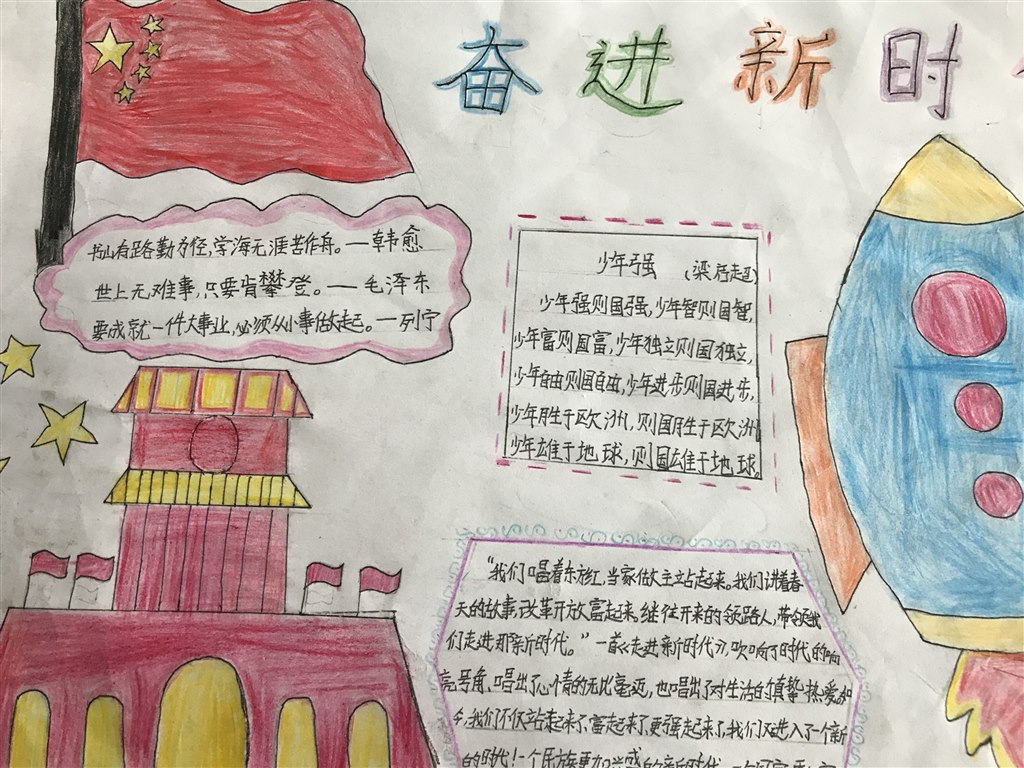 奋进新时
书山有路勤为径,学海无涯苦作舟。—韩愈
世上无难事,只要肯攀登。—毛泽东
要成就一件大事业,必须从小事做起。—列宁
少年强 (梁启超)
少年强则国强,少年智则国智,
少年富则国富,少年独立则国独立,
少年自由则国自由,少年进步则国进步,
少年胜于欧洲,则国胜于欧洲
少年雄于地球,则国雄于地球。
"我们唱着东方红,当家做主立站起来。我们讲着春
天的故事,改革开放富起来。继往开来的领路人,带领我
们走进那新时代。"一首《走进新时代》,吹响了时代的响
亮号角、唱出了心情的无比豪迈,也唱出了对生活的真挚热爱。如
今,我们不仅站起来了,富起来了,更强起来了,我们又进入了一个新
的时代!一个民族更加
的新时代